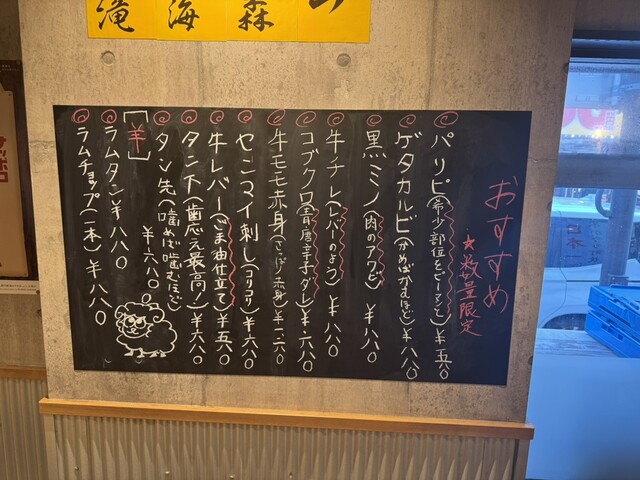 滝
海
森
おすすめ
★数量限定
パリピ(希少部位をピーマンと)¥五八〇
ゲタカルビ(かめばかむほど)¥八八〇
黒ミノ(肉のアワビ)¥八八〇
牛チレ(レバーのよう)¥八八〇
コブクロ(青唐辛子ダレ)¥六八〇
牛モモ赤身
センマイ刺し(コリコリ)¥六八〇
牛レバー(ごま油仕立て)¥五八〇
タン下(歯応え最高!)¥六八〇
タン先(噛めば噛むほど
¥六八〇
【羊】
ラムタン¥八八〇
ラムチョップ(一本)¥八八〇